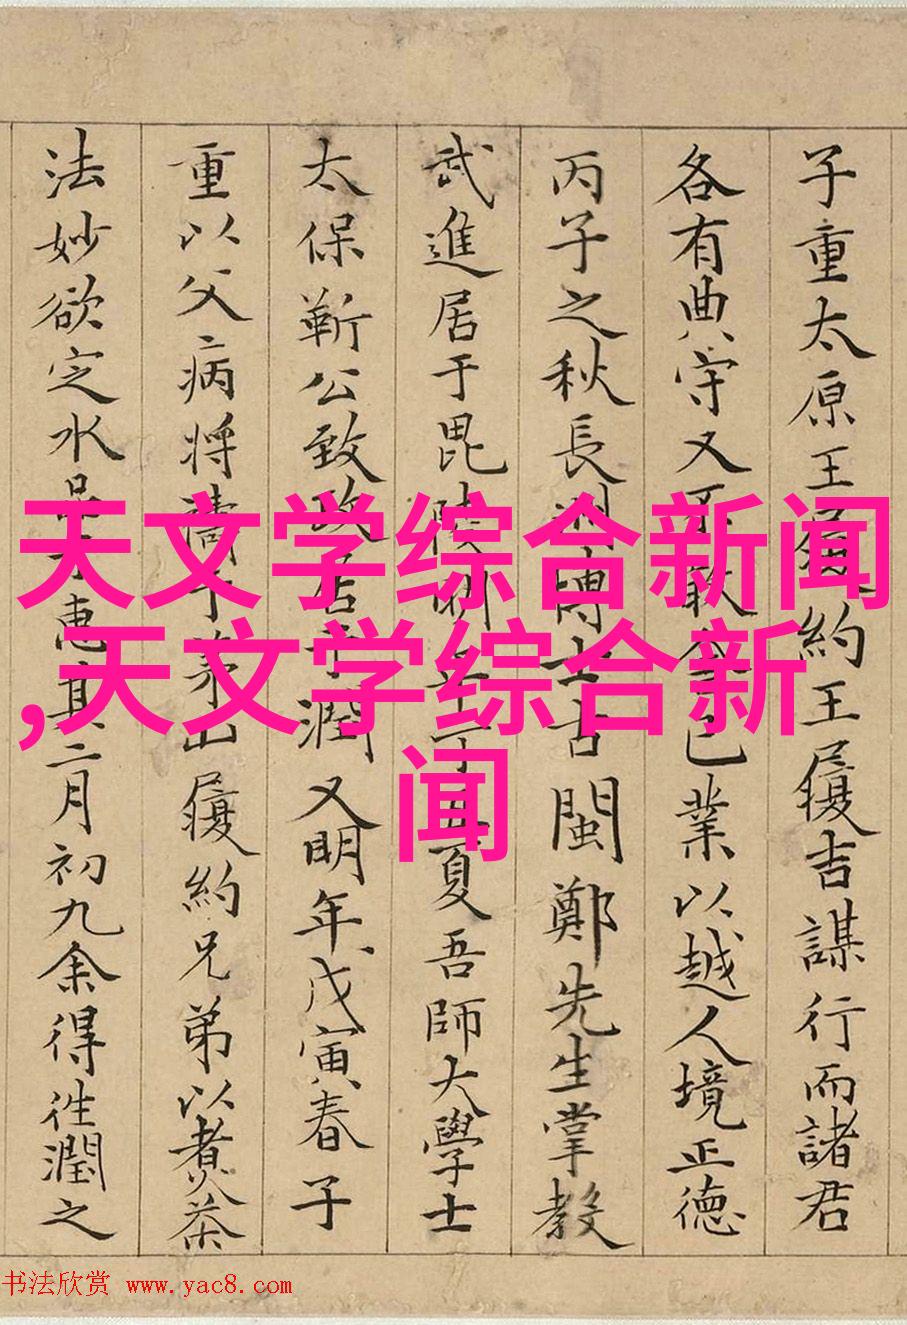 子重太原王履約王履吉謀行而諸君
各有典守又不敢舍己業以越人境正德
丙子之秋長洲博士古閩鄭先生掌教
武進居于毘陵明年丁丑夏吾師大學士
太保靳公致政居于潤又明年戊寅春子
重以父病將禱于茅山履約兄弟以煮茶
法妙欲定水品于惠其二月初九余得往潤之
天文学综合新闻
,天文学综合新
闻
书法欣赏 www.yac8.com